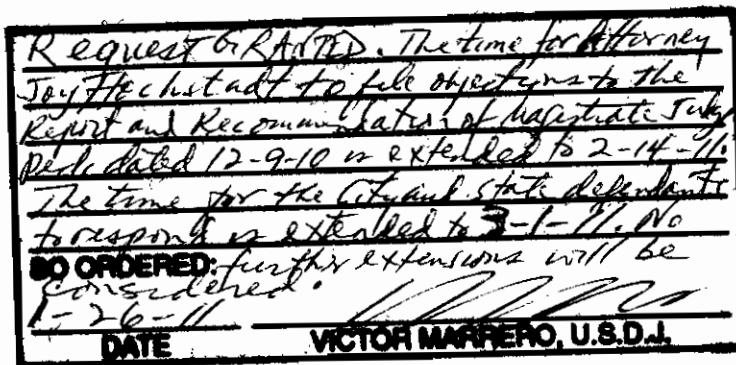 Request GRANTED. The time for Attorney
Joy Hochstadt to file objections to the
Report and Recommendation of Magistrate Judge
Peck dated 12-9-10 is extended to 2-14-11.
The time for the City and State defendants
to respond is extended to 3-1-11. No
SO ORDERED: further extensions will be
considered.
1-26-11
DATE VICTOR MARRERO, U.S.D.J.